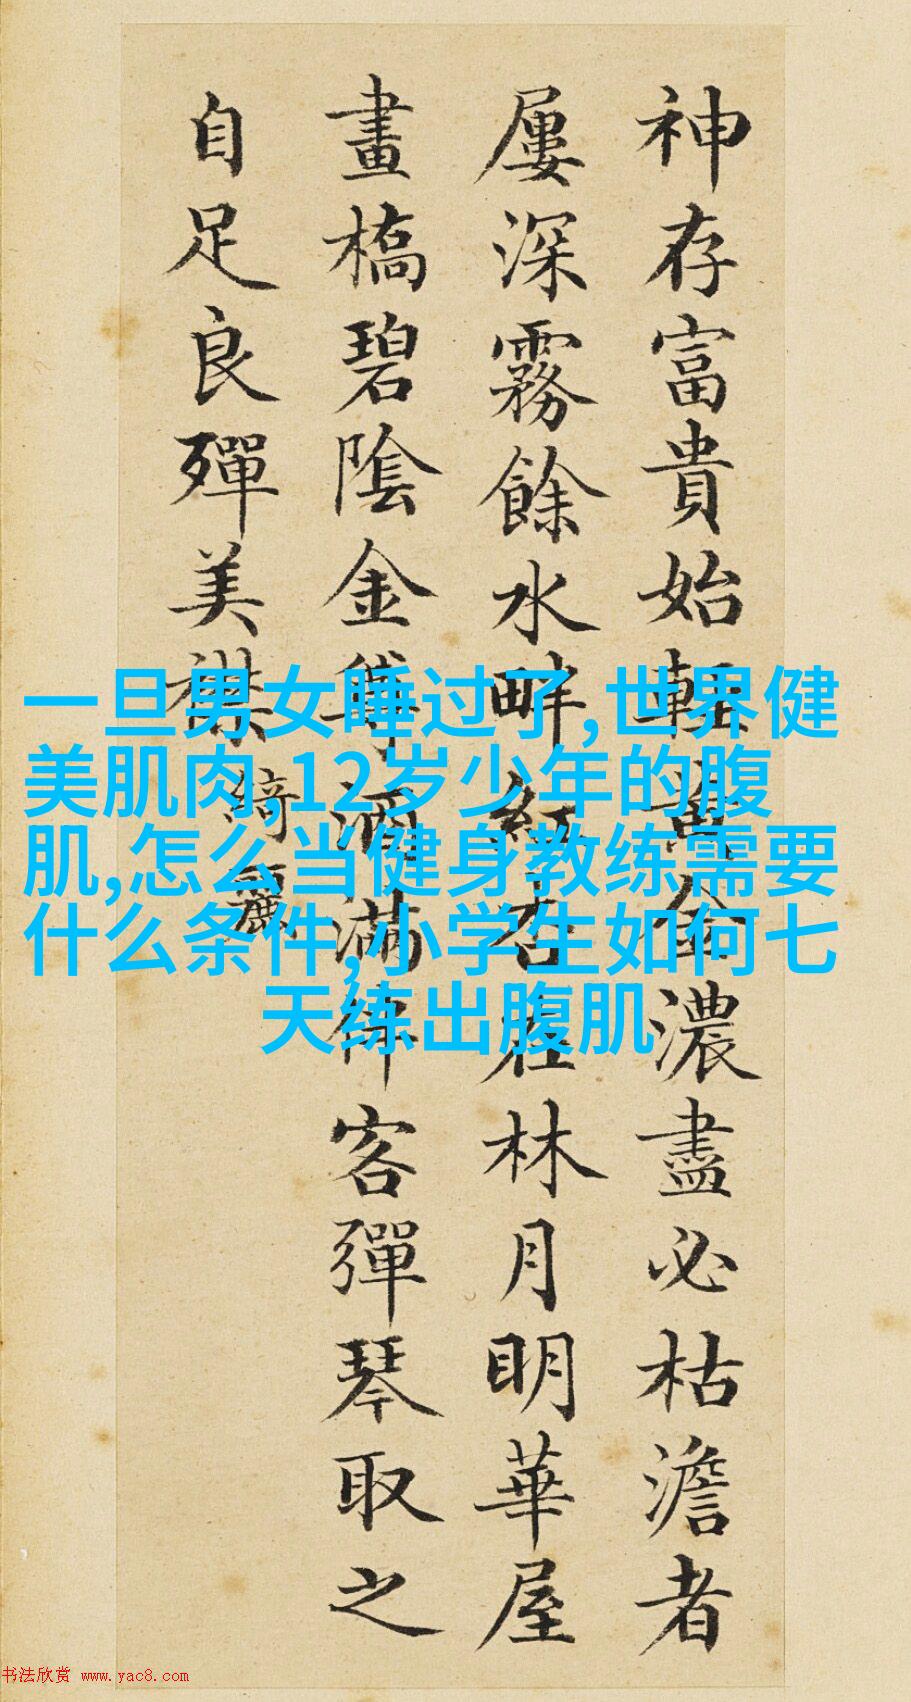 神存富貴始輕黃金濃盡必枯澹者
屢深霧餘水畔紅杏在林月明華屋
畫橋碧陰金尊酒滿伴客彈琴取之
自足良殫美襟
綺麗
一旦男女睡过了,世界健
美肌肉,12岁少年的腹
肌,怎么当健身教练需要
什么条件,小学生如何七
天练出腹肌
书法欣赏 www.yac8.com